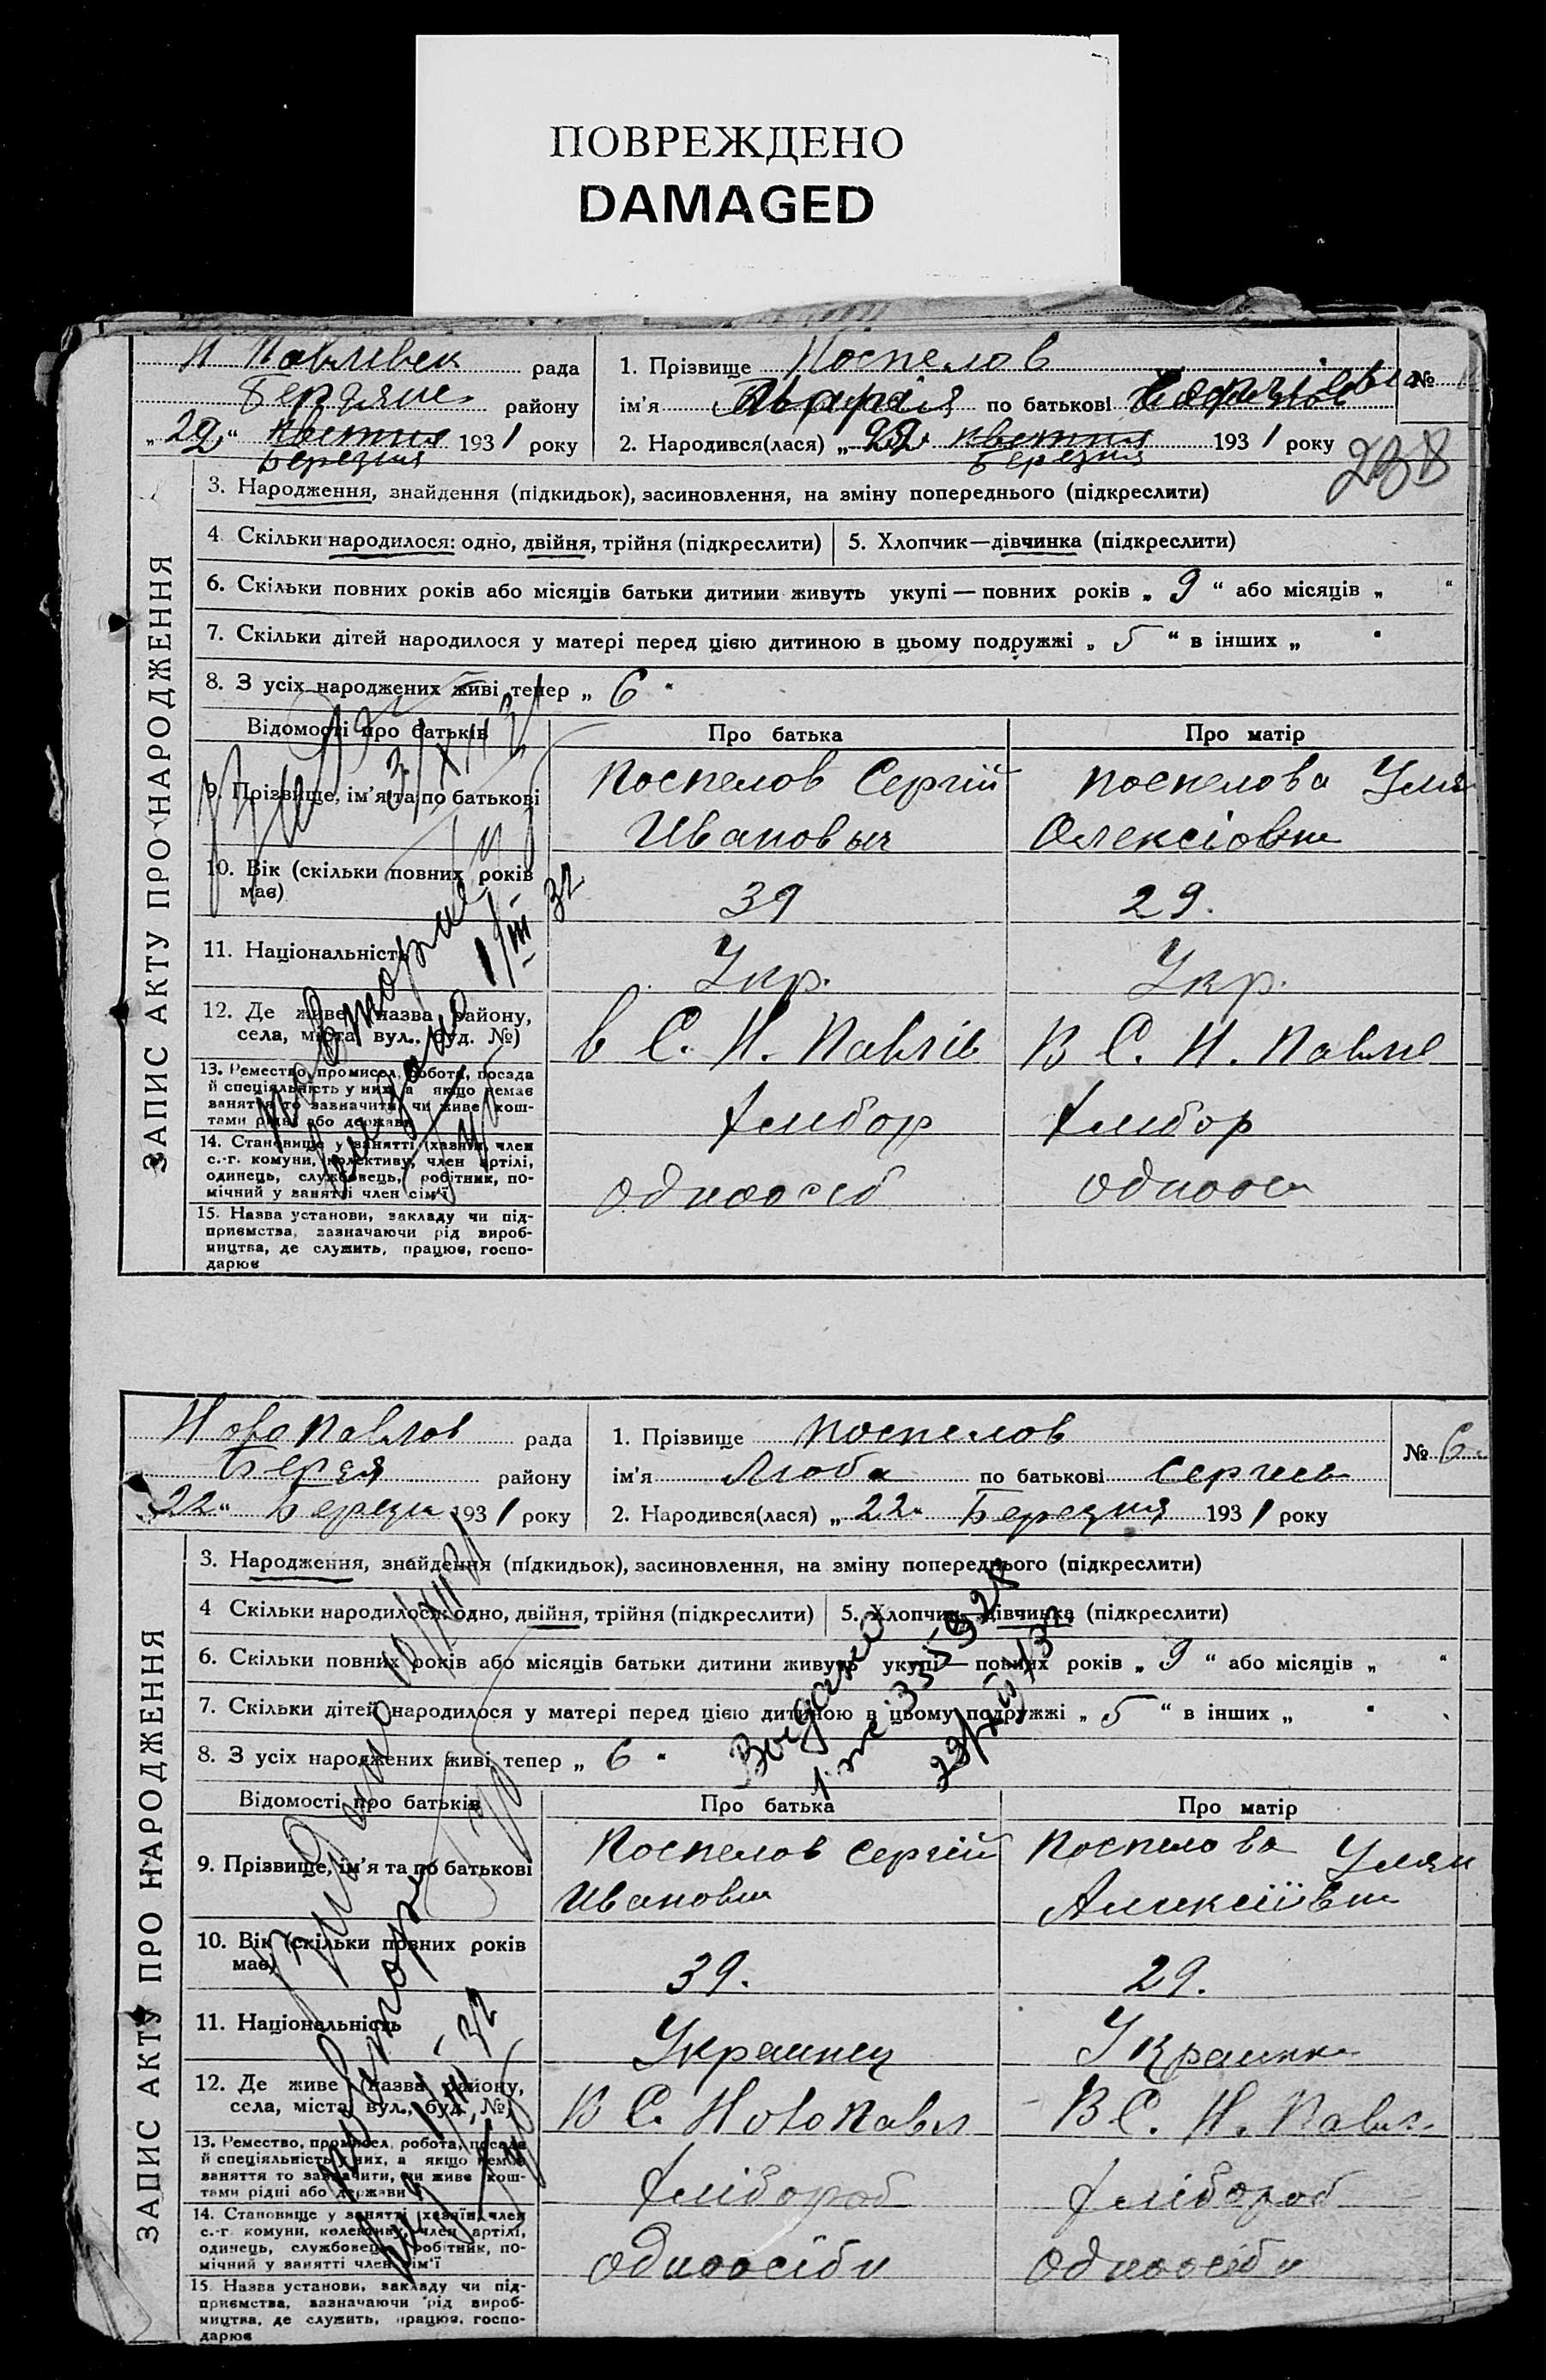 ПОВРЕЖДЕНО
DAMAGED
Н Павлівск рада
Бердянс району
„29“ квітня 1931 року
Березня
1. Прізвище Поспелов
ім'я Марія по батькові
2. Народився(лася) „22“ квітня 1931 року
Березня
№
238
ЗАПИС АКТУ ПРО НАРОДЖЕННЯ
3. Народження, знайдення (підкидьок), засиновлення, на зміну попереднього (підкреслити)
4. Скільки народилося: одно, двійня, трійня (підкреслити) 5. Хлопчик—дівчинка (підкреслити)
6. Скільки повних років або місяців батьки дитини живуть укупі — повних років „ 9 “ або місяців „ “
7. Скільки дітей народилося у матері перед цією дитиною в цьому подружжі „ 5 “ в інших „ “
8. З усіх народжених живі тепер „ 6 “
Відомості про батьків Про батька Про матір
9. Прізвище, ім'я та по батькові
Поспелов Сергій
Иванович
Поспелова Уля
Олексіовна
10. Вік (скільки повних років
має)
39 29.
11. Національність Укр. Укр.
12. Де живе (назва району,
села, міста, вул., буд. №)
в С. Н. Павлів В С. Н. Павлів
13. Ремество, промисел, робота, посада
й спеціяльність у них, а якщо немає
заняття то зазначити, чи живе кош-
тами рідні або держави
Хлибор Хлибор
14. Становище у занятті (хазяїн, член
с.-г. комуни, колективу, член артілі,
одинець, службовець, робітник, по-
мічний у занятті член сім'ї
одноосіб одноос
15. Назва установи, закладу чи під-
приємства, зазначаючи рід вироб-
ництва, де служить, працює, госпо-
дарює
повторное
выдано 1/III-32
Ново Павлов рада
Бердя району
22“ Березн 1931 року
1. Прізвище Поспелов
ім'я Люба по батькові Сергиев
2. Народився(лася) „22“ Березня 1931 року
№ 6
ЗАПИС АКТУ ПРО НАРОДЖЕННЯ
3. Народження, знайдення (підкидьок), засиновлення, на зміну попереднього (підкреслити)
4 Скільки народилося: одно, двійня, трійня (підкреслити) 5. Хлопчик—дівчинка (підкреслити)
6. Скільки повних років або місяців батьки дитини живуть укупі — повних років „ 9 “ або місяців „ “
7. Скільки дітей народилося у матері перед цією дитиною в цьому подружжі „ 5 “ в інших „ “
8. З усіх народжених живі тепер „ 6 “
Відомості про батьків Про батька Про матір
9. Прізвище, ім'я та по батькові
Поспелов Сергій
Ивановш
Поспелова Улян
Аликсіївн
10. Вік (скільки повних років
має)
39. 29.
11. Національність Украинец Украинка
12. Де живе (назва району,
села, міста, вул., буд. №)
В С. Новопавл В С. Н. Павл.
13. Ремество, промисел, робота, посада
й спеціяльність у них, а якщо немає
заняття то зазначити, чи живе кош-
тами рідні або держави
хлібороб хлібороб
14. Становище у занятті (хазяїн, член
с.-г. комуни, колективу, член артілі,
одинець, службовець, робітник, по-
мічний у занятті член сім'ї
одноосіби одноосіби
15. Назва установи, закладу чи під-
приємства, зазначаючи рід вироб-
ництва, де служить, працює, госпо-
дарює
Выдано
повторн